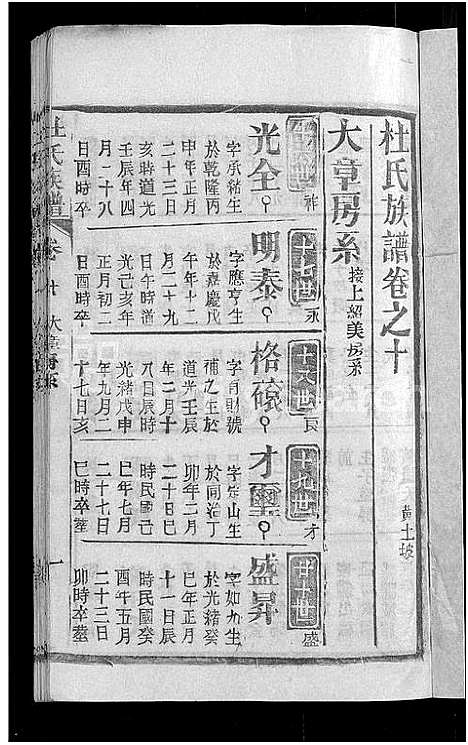 杜氏族譜卷之十
黃土坡
大章房系 接上紹美房系
十六世 祚
光全
字承祜生
於乾隆丙
申年正月
二十三日
亥時道光
壬辰年四
月二十八
日酉時卒
十七世 永
明泰
字應亨生
於嘉慶戊
午年十二
月二十九
日午時
光己亥年
正月初二
日酉時卒
十八世 長
格碌
字 財號
補之生於
道光壬辰
年二月十
八日辰時
光緒戊申
年九月二
十七日亥
十九世 才
才璽
字定山生
於同治丁
卯年二月
二十日巳
時民國己
巳年七月
二十七日
巳時卒葬
廿世 盛
盛昇
字如九生
於光緒癸
巳年正月
十一日辰
時民國癸
酉年五月
二十三日
卯時卒葬
杜氏族譜 卷十 大章房系 一